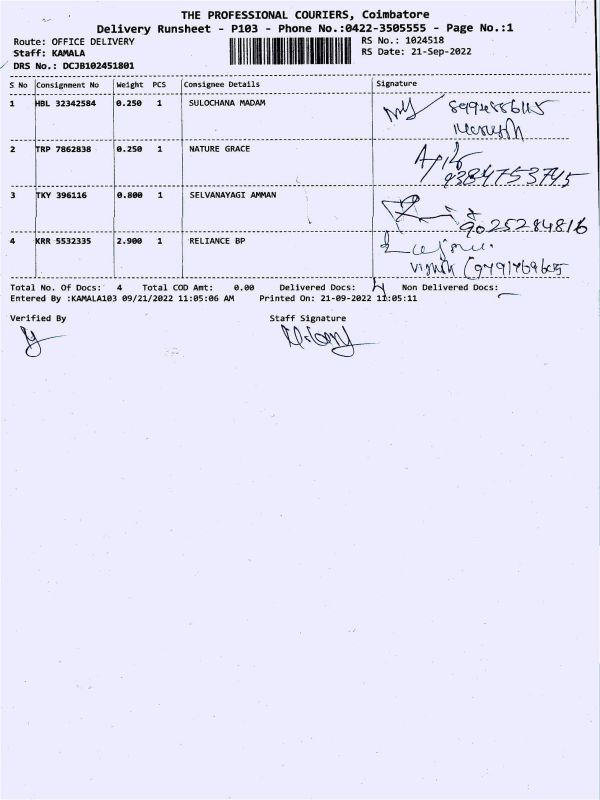 THE PROFESSIONAL COURIERS, Coimbatore
Delivery Runsheet - P103 - Phone No.:0422-3505555 - Page No.:1
Route: OFFICE DELIVERY
Staff: KAMALA
DRS No.: DCJB102451801
RS No.: 1024518
RS Date: 21-Sep-2022
S No Consignment No Weight PCS Consignee Details Signature
1 HBL 32342584 0.250 1 SULOCHANA MADAM
2 TRP 7862838 0.250 1 NATURE GRACE
9384753745
3 TKY 396116 0.800 1 SELVANAYAGI AMMAN
9025284816
4 KRR 5532335 2.900 1 RELIANCE BP
Total No. Of Docs: 4 Total COD Amt: 0.00 Delivered Docs: 4 Non Delivered Docs:
Entered By :KAMALA103 09/21/2022 11:05:06 AM Printed On: 21-09-2022 11:05:11
Verified By Staff Signature